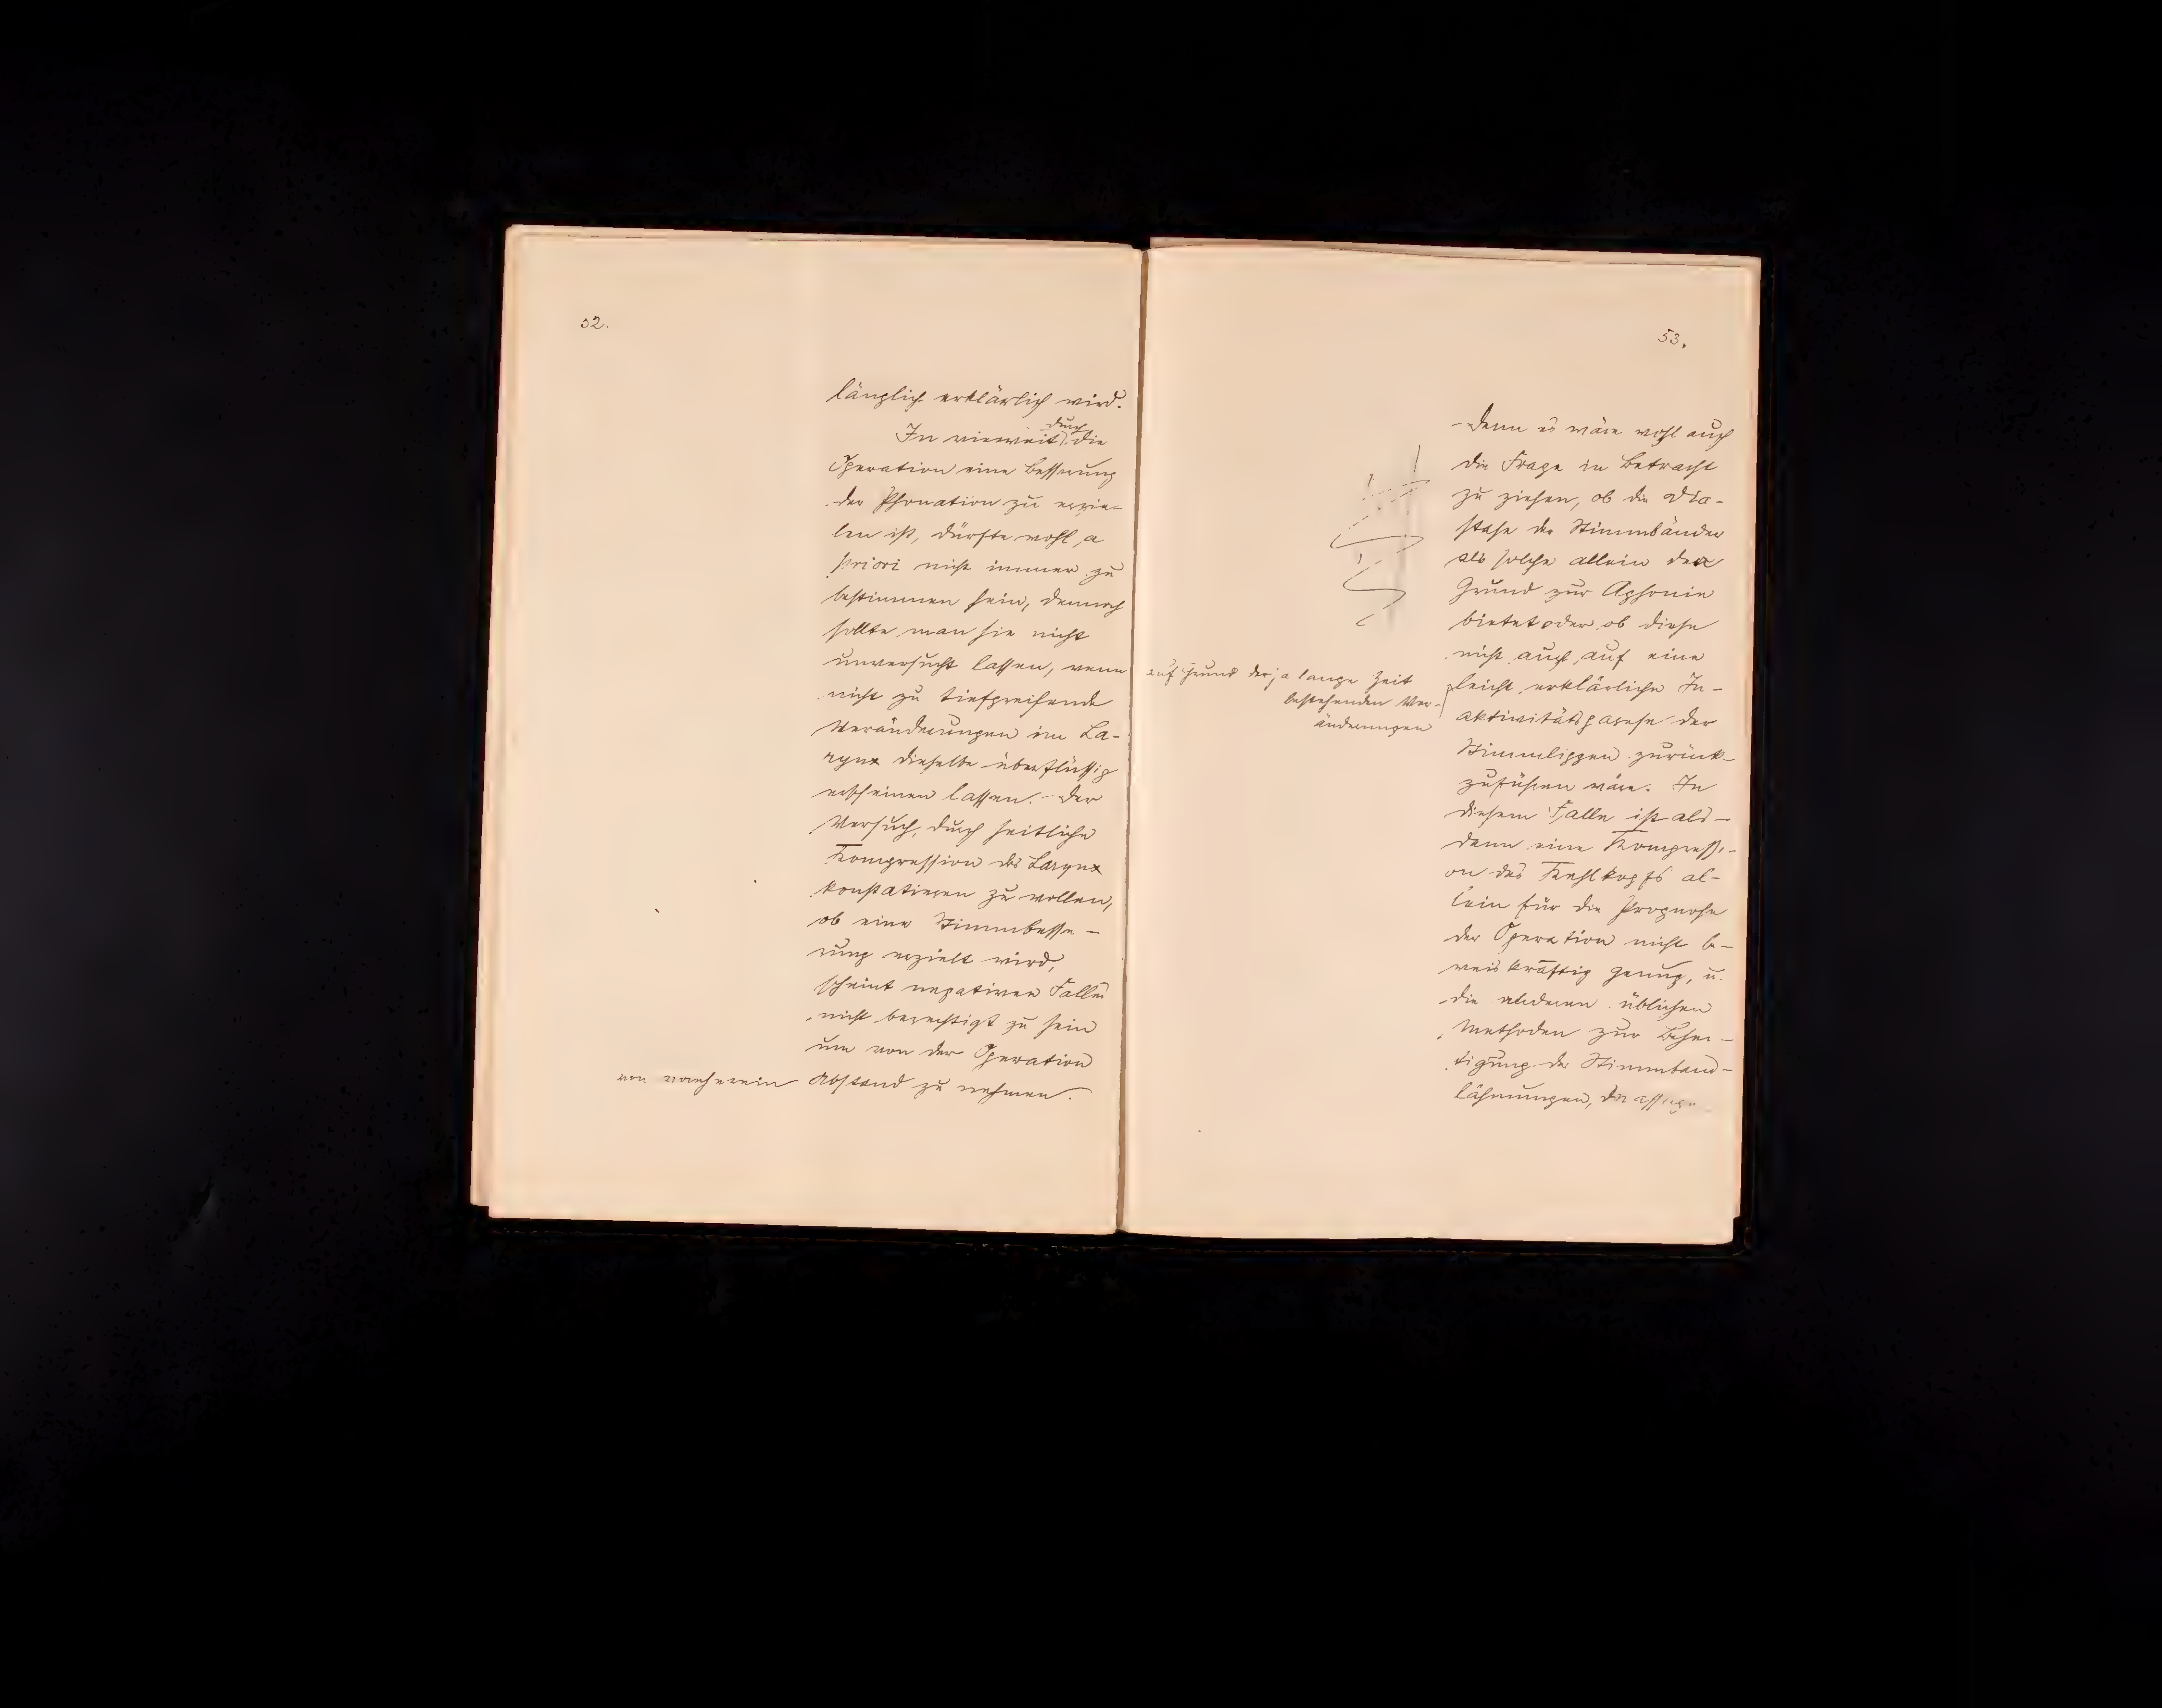 52.
länglich erklärlich wird.
durch
In wieweit die
Operation eine Besserung
der Phonation zu erzie-
len ist, dürfte wohl a
priori nicht immer zu
bestimmen sein, dennoch
sollte man sie nicht
unversucht lassen, wenn
nicht zu tiefgreifende
Veränderungen im La-
rynx dieselbe überflüssig
erscheinen lassen. - Der
Versuch, durch seitliche
Kompression des Larynx
konstatieren zu wollen,
ob eine Stimmbesse-
rung erzielt wird,
scheint negativen Falles
nicht berechtigt zu sein
um von der Operation
von vornherein Abstand zu nehmen.
53.
Denn es wäre wohl auch
die Frage in Betracht
zu ziehen, ob die Dia-
stase der Stimmbänder
als solche allein der
Grund zur Aphonie
bietet oder ob diese
nicht auch auf eine
auf Grund der ja lange Zeit
bestehenden Ver-
änderungen
leicht erklärliche In-
aktivitätsparese der
Stimmlippen zurück-
zuführen wäre. In
diesem Falle ist als-
dann eine Kompressi-
on des Kehlkopfs al-
lein für die Prognose
der Operation nicht be-
weiskräftig genug, u.
die anderen üblichen
Methoden zur Besei-
tigung der Stimmband-
lähmungen, der